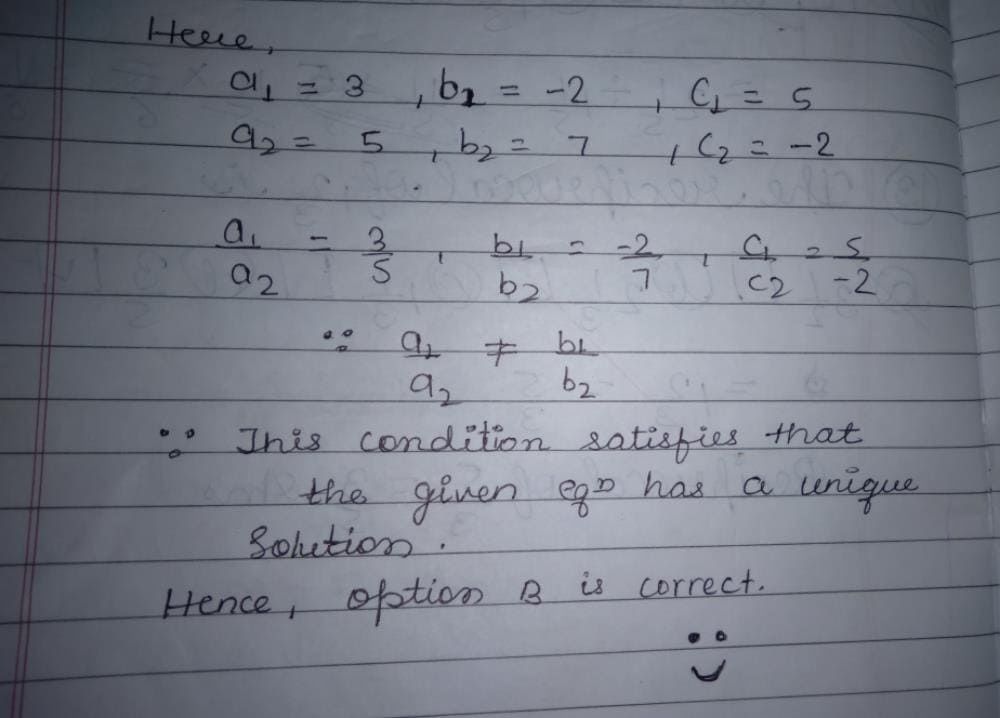 Here,
a₁ = 3 , b₁ = -2 , C₁ = 5
a₂ = 5 , b₂ = 7 , C₂ = -2
a₁/a₂ = 3/5 , b₁/b₂ = -2/7 , C₁/C₂ = 5/-2
∵ a₁/a₂ ≠ b₁/b₂
∵ This condition satisfies that
the given eqⁿ has a unique
Solution.
Hence, option B is correct.